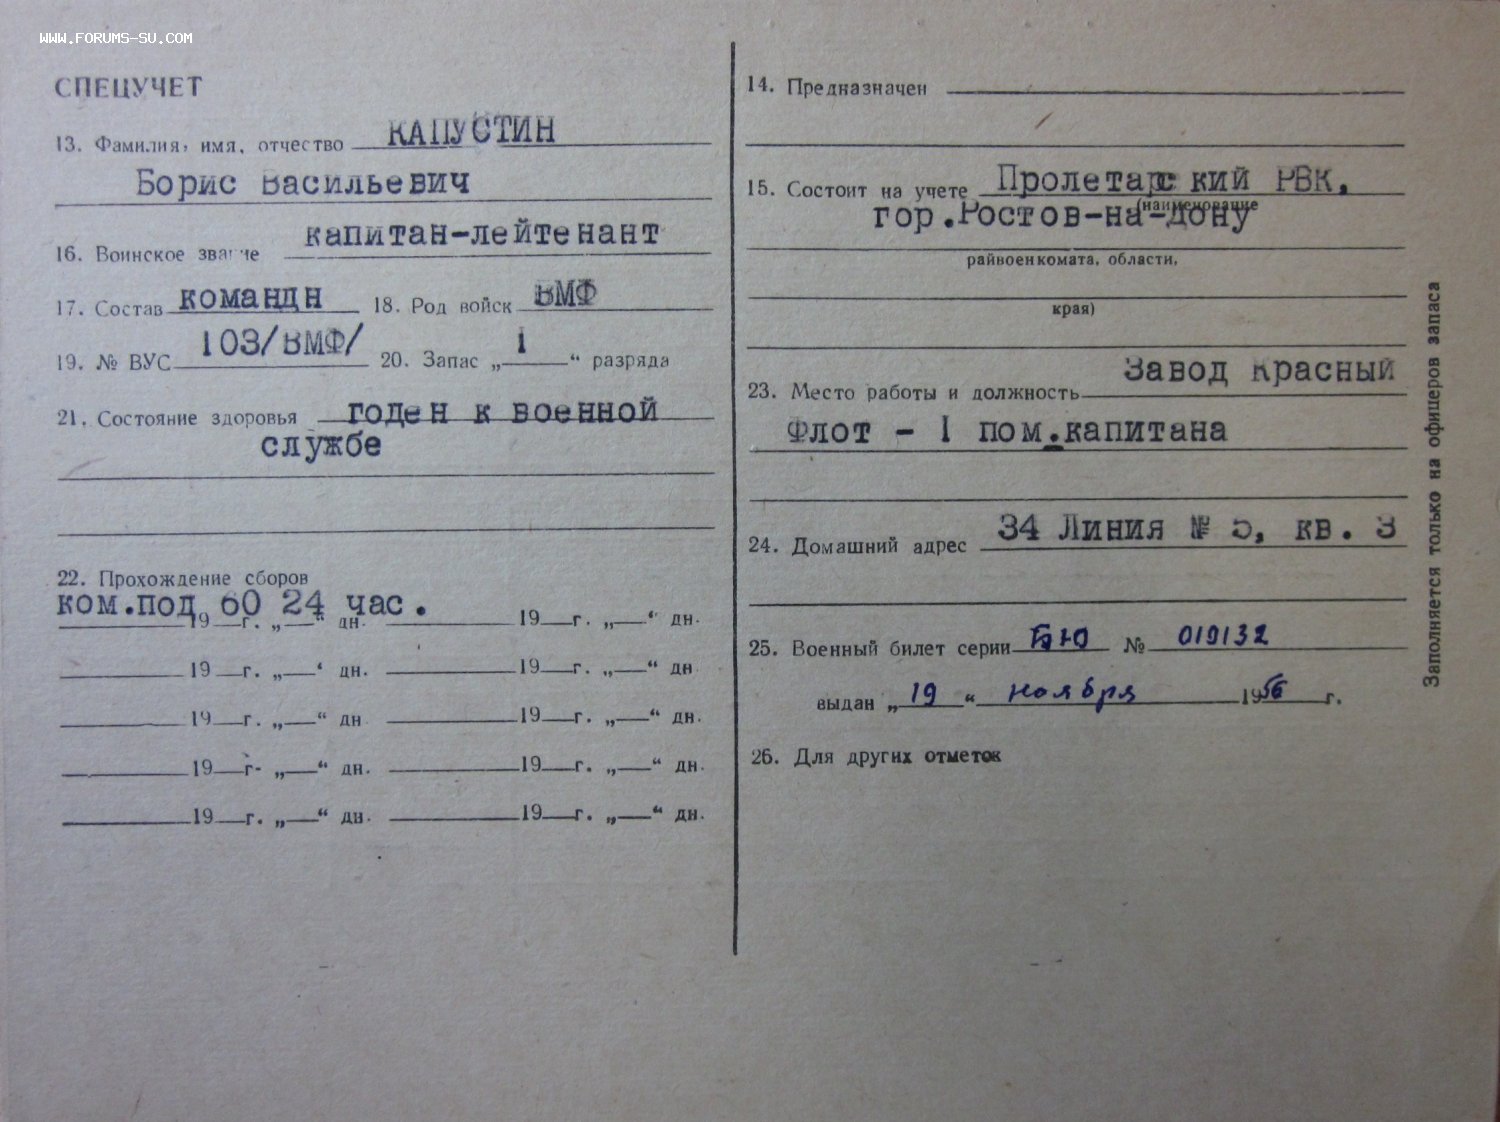 WWW.FORUMS-SU.COM
СПЕЦУЧЕТ
13. Фамилия, имя, отчество КАПУСТИН
Борис Васильевич
16. Воинское звание капитан-лейтенант
17. Состав командн 18. Род войск ВМФ
19. № ВУС 103/ВМФ/ 20. Запас „ 1 “ разряда
21. Состояние здоровья годен к военной
службе
22. Прохождение сборов
ком.под 60 24 час.
19 г. „ “ дн. 19 г. „ “ дн.
19 г. „ “ дн. 19 г. „ “ дн
19 г. „ “ дн 19 г. „ “ дн.
19 г- „ “ дн. 19 г. „ “ дн.
19 г. „ “ дн. 19 г. „ “ дн.
14. Предназначен
15. Состоит на учете Пролетарский РВК,
(наименование
гор.Ростов-на-Дону
райвоенкомата, области,
края)
23. Место работы и должность Завод Красный
Флот - 1 пом.капитана
24. Домашний адрес 34 Линия № 5, кв. 3
25. Военный билет серии БЮ № 019132
выдан „ 19 “ ноября 1956 г.
26. Для других отметок
Заполняется только на офицеров запаса